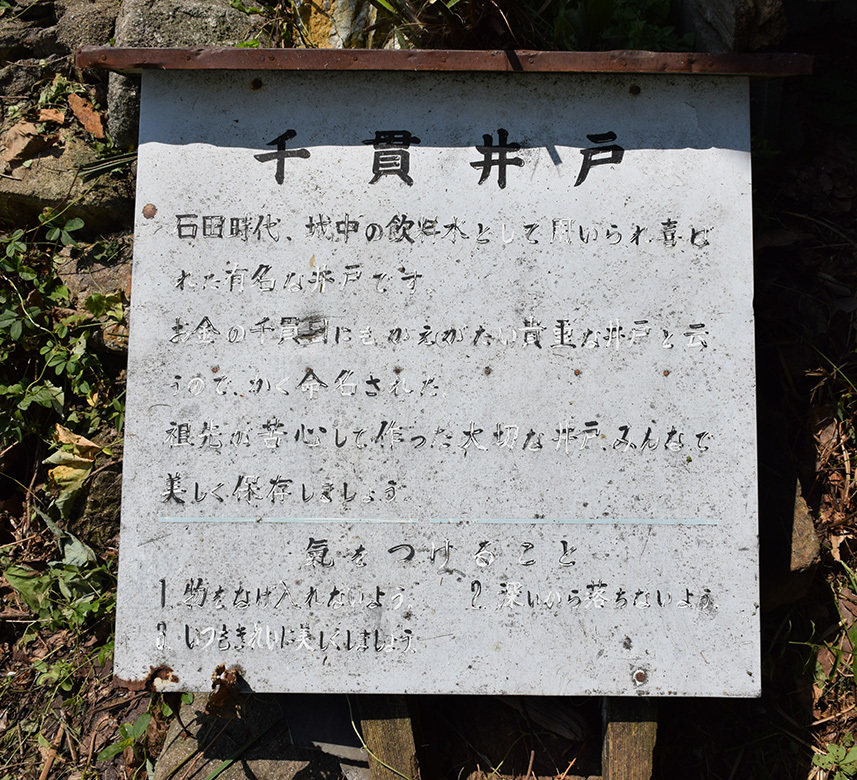 千貫井戸
石田時代、城中の飲料水として用いられ喜ば
れた有名な井戸です。
お金の千貫目にもかえがたい貴重な井戸と云
うので、かく命名された。
祖先が苦心して作った大切な井戸、みんなで
美しく保存しましょう。
氣をつけること
1. 物をなげ入れないよう。 2. 深いから落ちないよう。
3. いつもきれいに美しくしましょう。